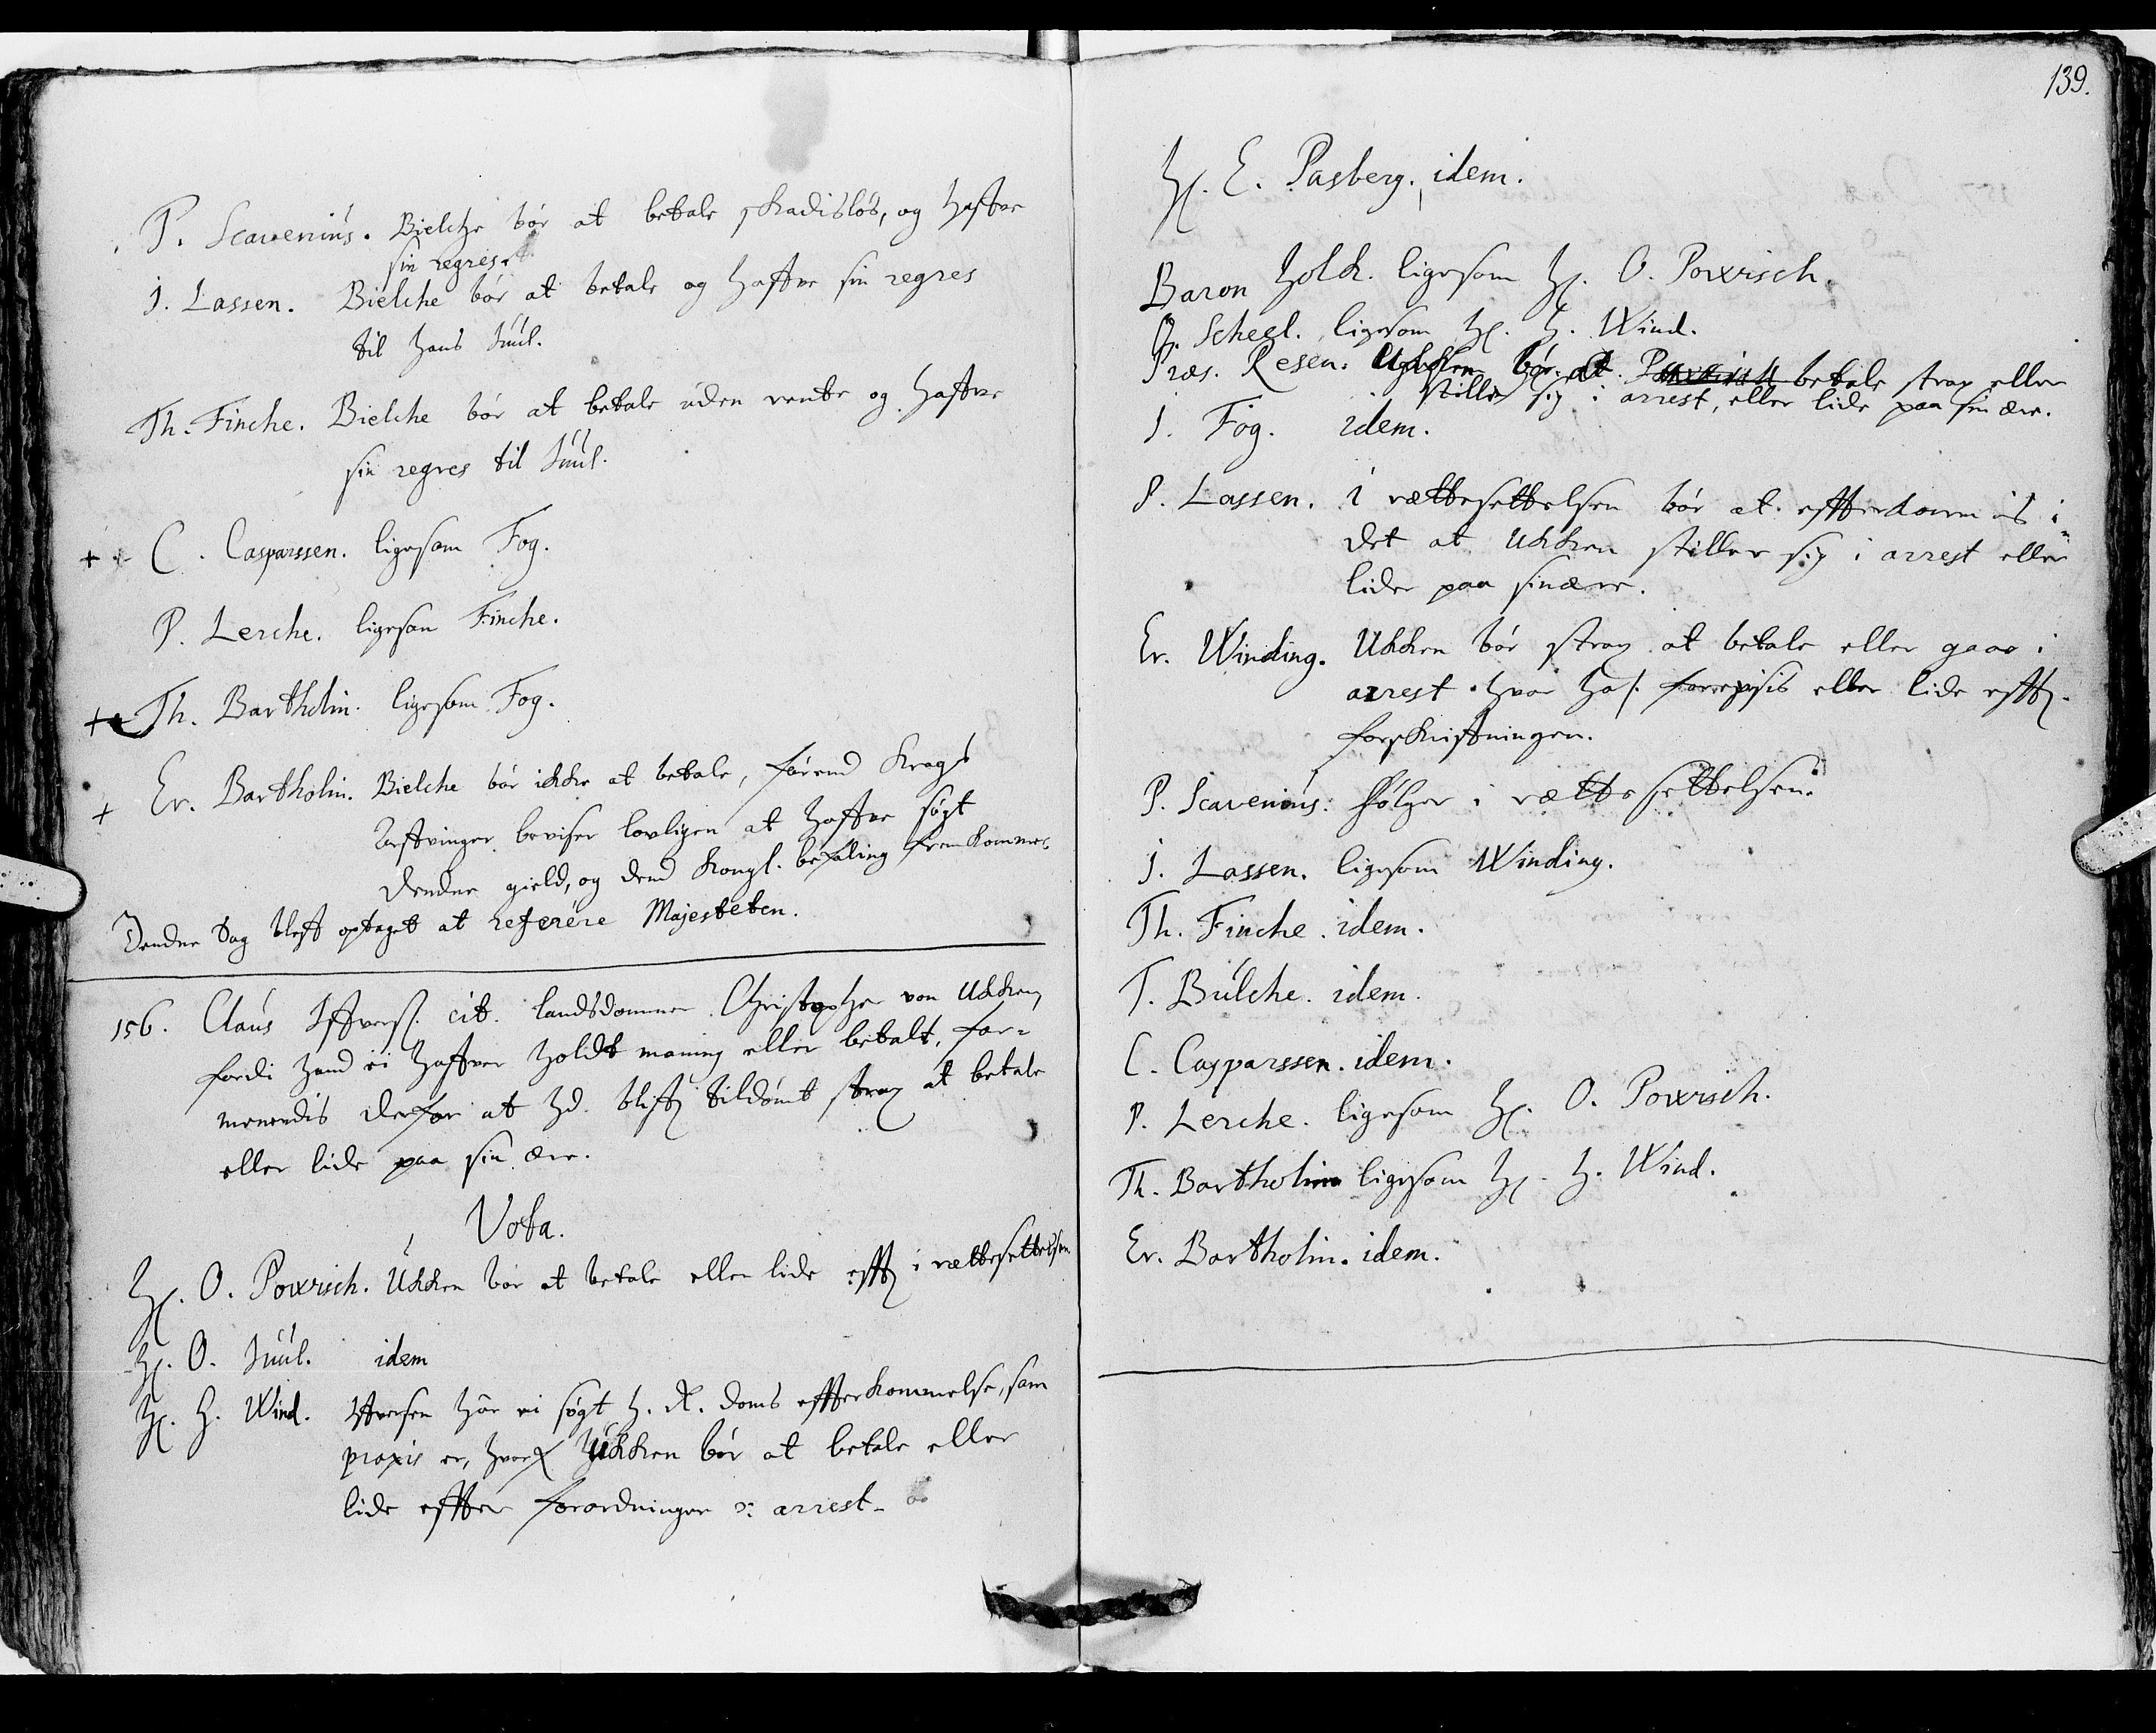 P. Scavenius. Bielche bør at betale skadisløs, og haffve
sin regres.
J. Lassen. Bielche bør at betale og haffve sin regres
til Hans Juul.
Th. Finche. Bielche bør at betale uden rente og haffve
sin regres til Juul.
+ C. Casparssen. ligesom Fog.
P. Lerche. ligesom Finche.
+ Th. Bartholin. ligesom Fog.
+ Er. Bartholin. Bielche bør ikke at betale, førend Krags
Arffvinger beviser lovligen at haffve søgt
dendne gield, og dend Kongl. befaling fremkommer
Dendne Sag bleff optaget at referere Majesteten.
156. Claus Iffvers. cit. landsdommer Christopher von Ukken,
fordi hand ei haffver holdt maning eller betalt, for-
menendis derfor at hd. bliff tildømt strax at betale
eller lide paa sin ære.
Vota.
H. O. Powisch. Ukken bør at betale eller lide eff i rettesettelsen
H. O. Juul. idem
H. H. Wind. Iffversen har ei søgt H. R. doms effterkommelse, som
praxis er, hvorf Ukken bør at betale eller
lide effter forordninger ɔ: arrest
139.
H. E. Pasberg. idem.
Baron Holck. ligesom H. O. Powisch.
P. Scheel. ligesom H. H. Wind.
Præs. Resen. Ukken bør at betale strax eller
stille sig i arrest, eller lide paa sin ære.
J. Fog. idem.
P. Lassen. i rettesettelsen bør at effterkommis i
det at Ukken stiller sig i arrest eller
lide paa sin ære.
Er. Winding. Ukken bør strax at betale eller gaae i
arrest hvor ham forevisis eller lide eff.
forskriffningen.
P. Scavenius. følger i rettesettelsen.
J. Lassen. ligesom Winding.
Th. Finche. idem.
T. Bülche. idem.
C. Casparssen. idem.
P. Lerche. ligesom H. O. Powisch.
Th. Bartholin ligesom H. H. Wind.
Er. Bartholin. idem.